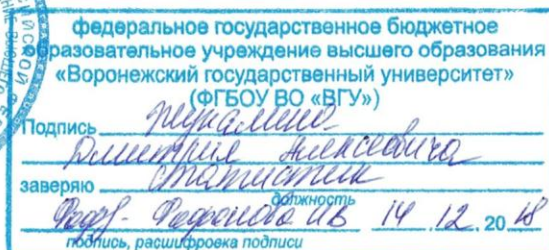 федеральное государственное бюджетное
образовательное учреждение высшего образования
«Воронежский государственный университет»
(ФГБОУ ВО «ВГУ»)
Подпись
Дмитрия Алексеевича
заверяю статистик
должность
14 12. 2018
подпись, расшифровка подписи